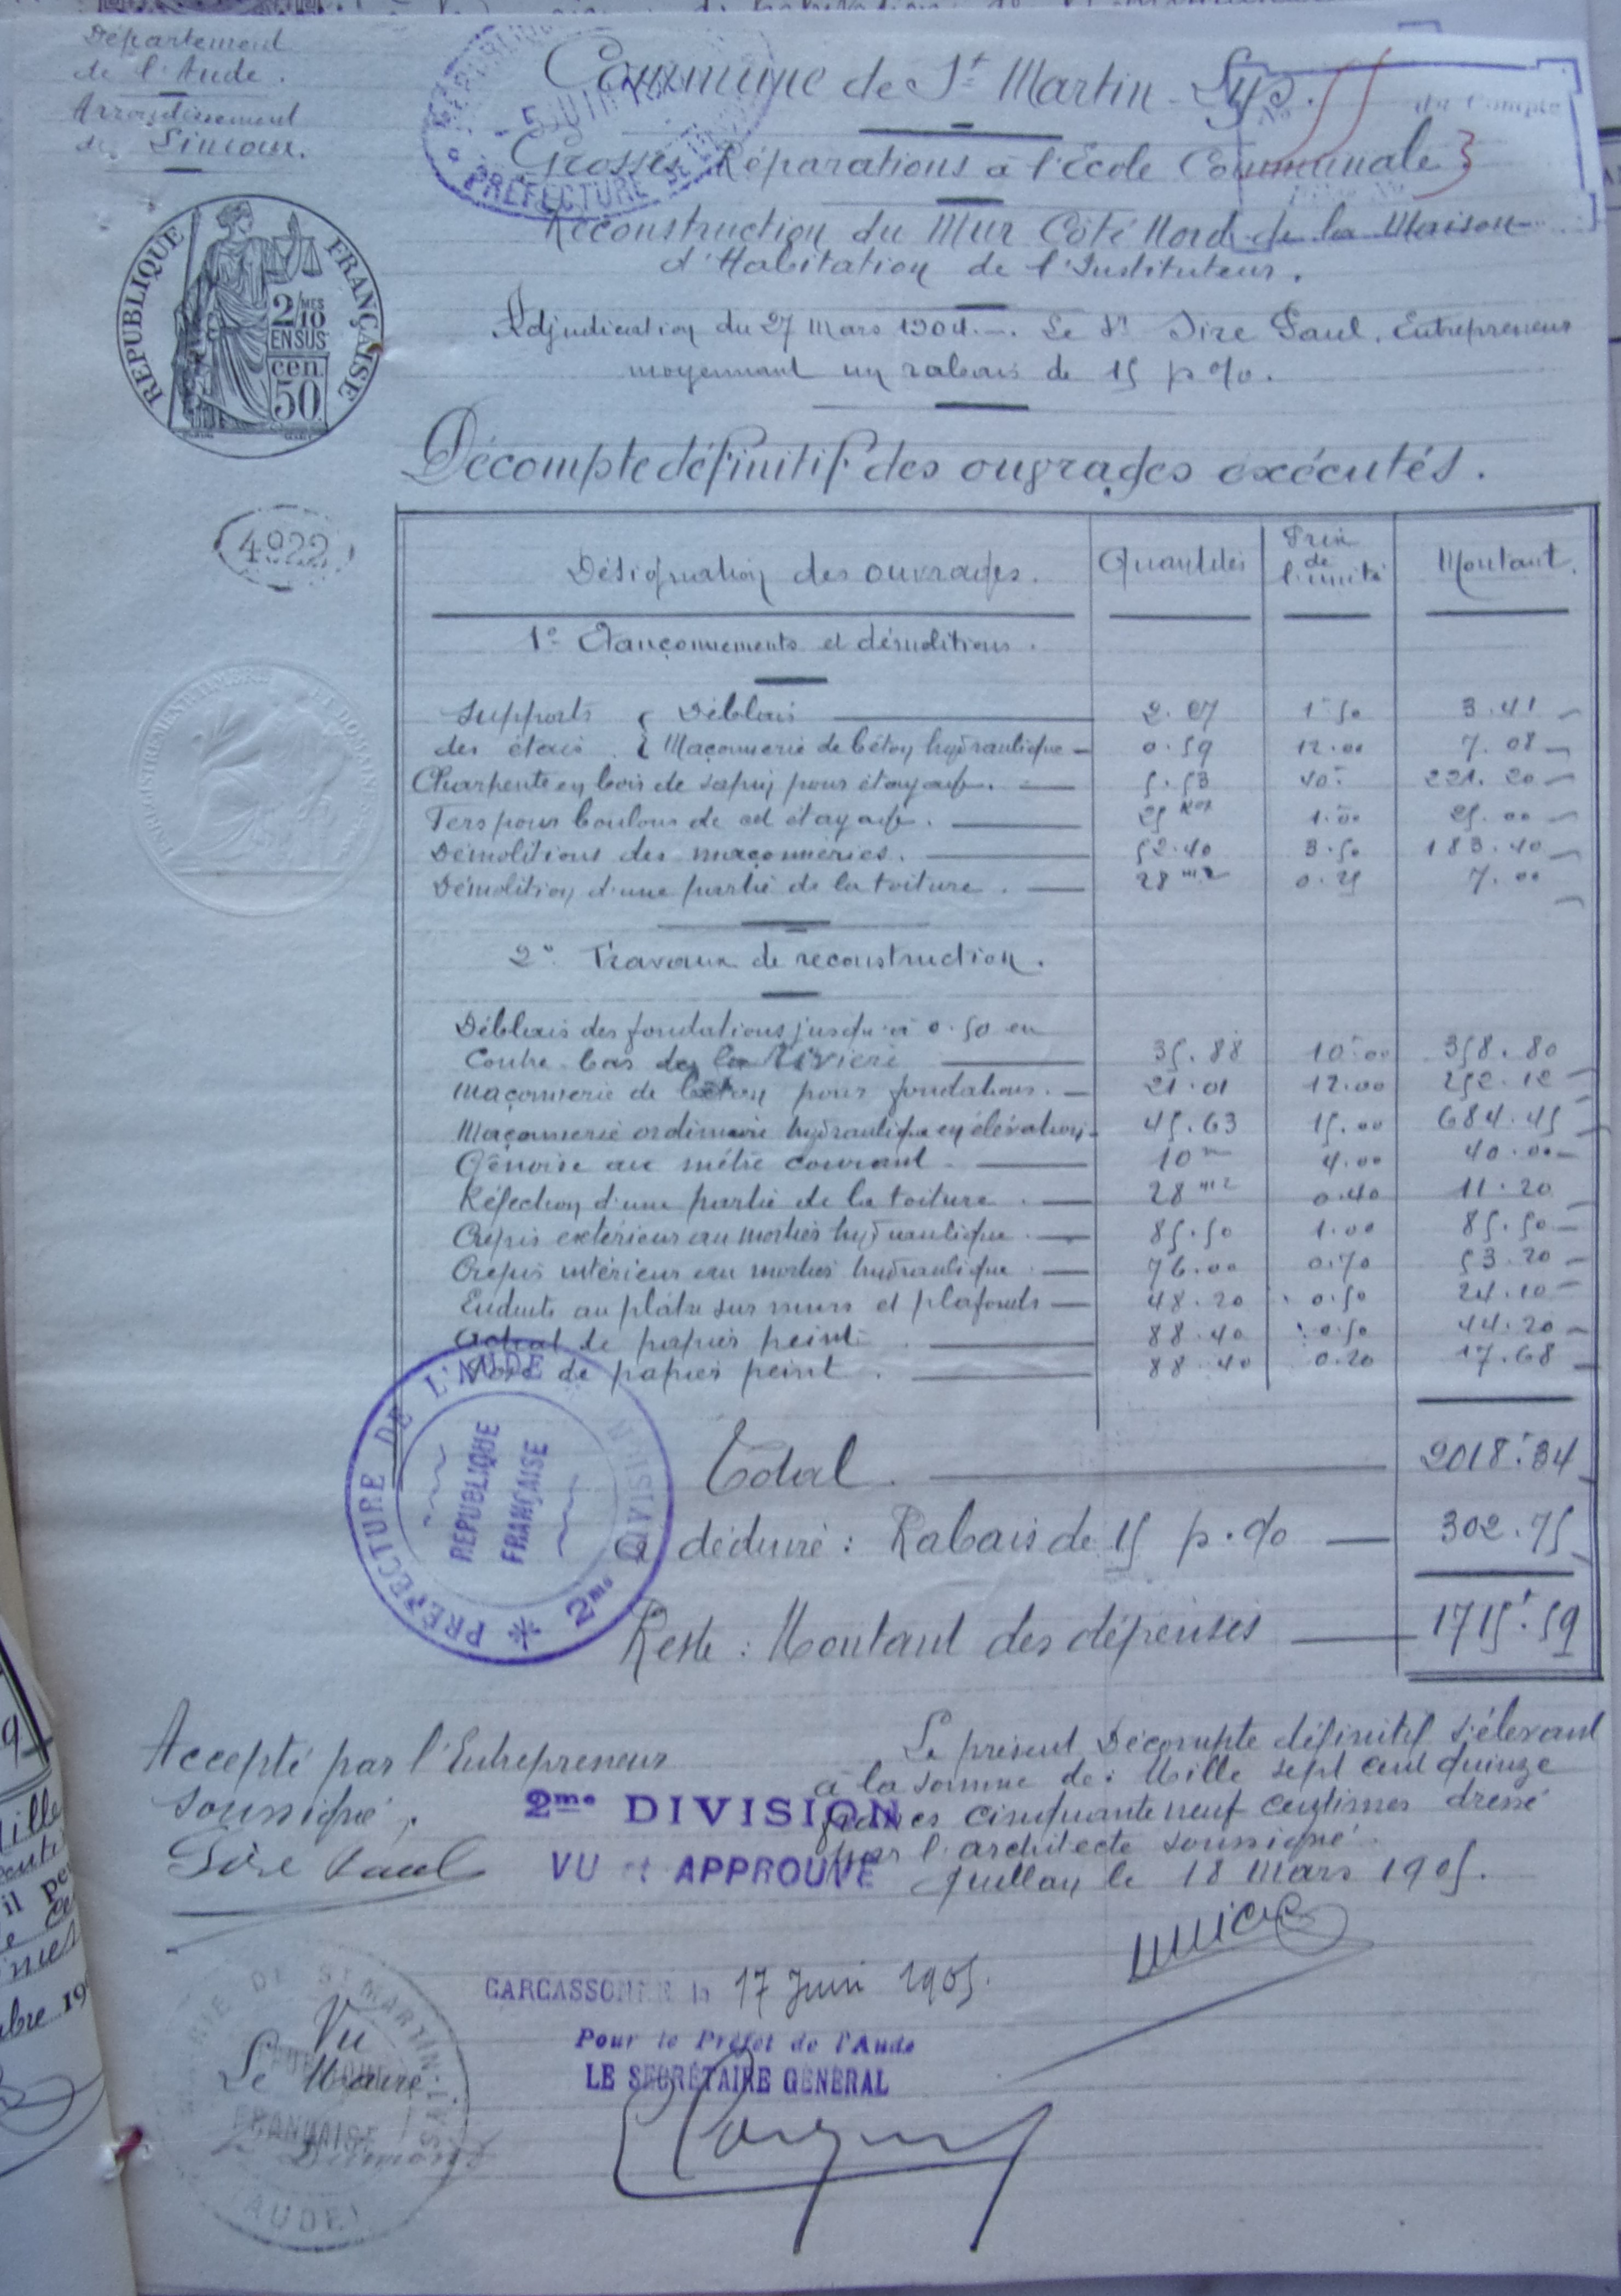 Département
de l'Aude.
Arrondissement
de Limoux.
Commune de St Martin-Lys.
PRÉFECTURE
5 JUIN
du Compte
Grosses Réparations à l'École Communale
Reconstruction du Mur Côté Nord de la Maison
d'Habitation de l'Instituteur.
REPUBLIQUE FRANÇAISE
2/10 MES
EN SUS
cen.
50
Adjudication du 27 Mars 1904. — Le Sr Sire Paul, Entrepreneur
moyennant un rabais de 15 p %.
Décompte définitif des ouvrages exécutés.
4922
Désignation des ouvrages. Quantités Prix de l'unité Montant.
1° Étançonnements et démolitions.
Supports { Déblais 2.27 1.50 3.41
des étais { Maçonnerie de béton hydraulique 0.59 12.00 7.08
Charpente en bois de sapin pour étayage. 5.53 40. 221.20
Fers pour boulons de cet étayage. 25 Kos 1.00 25.00
Démolitions des maçonneries. 52.40 3.50 183.40
Démolition d'une partie de la toiture. 28 m2 0.25 7.00
2° Travaux de reconstruction.
Déblais des fondations jusqu'à 0.50 en
contre-bas de la Rivière 35.88 10.00 358.80
Maçonnerie de béton pour fondations. 21.01 12.00 252.12
Maçonnerie ordinaire hydraulique en élévation 45.63 15.00 684.45
Génoise au mètre courant 10 m 4.00 40.00
Réfection d'une partie de la toiture. 28 m2 0.40 11.20
Crépis extérieur au mortier hydraulique. 85.50 1.00 85.50
Crépis intérieur au mortier hydraulique. 76.00 0.70 53.20
Enduits au plâtre sur murs et plafonds 48.20 0.50 24.10
Achat de papier peint 88.40 0.50 44.20
Pose de papier peint. 88.40 0.20 17.68
Total. 2018.34
à déduire : Rabais de 15 p. % 302.75
Reste : Montant des dépenses 1715.59
PREFECTURE DE L'AUDE
REPUBLIQUE
FRANÇAISE
2me DIVISION
Accepté par l'Entrepreneur
soussigné,
Sire Paul
Le présent Décompte définitif s'élevant
à la somme de : Mille sept cent quinze
francs cinquante neuf centimes dressé
par l'architecte soussigné.
Quillan le 18 Mars 1905.
2me DIVISION
VU et APPROUVÉ
CARCASSONNE le 17 Juin 1905.
Pour le Préfet de l'Aude
LE SECRÉTAIRE GÉNÉRAL
MAIRIE DE ST MARTIN-LYS
FRANÇAISE
(AUDE)
Vu
Le Maire